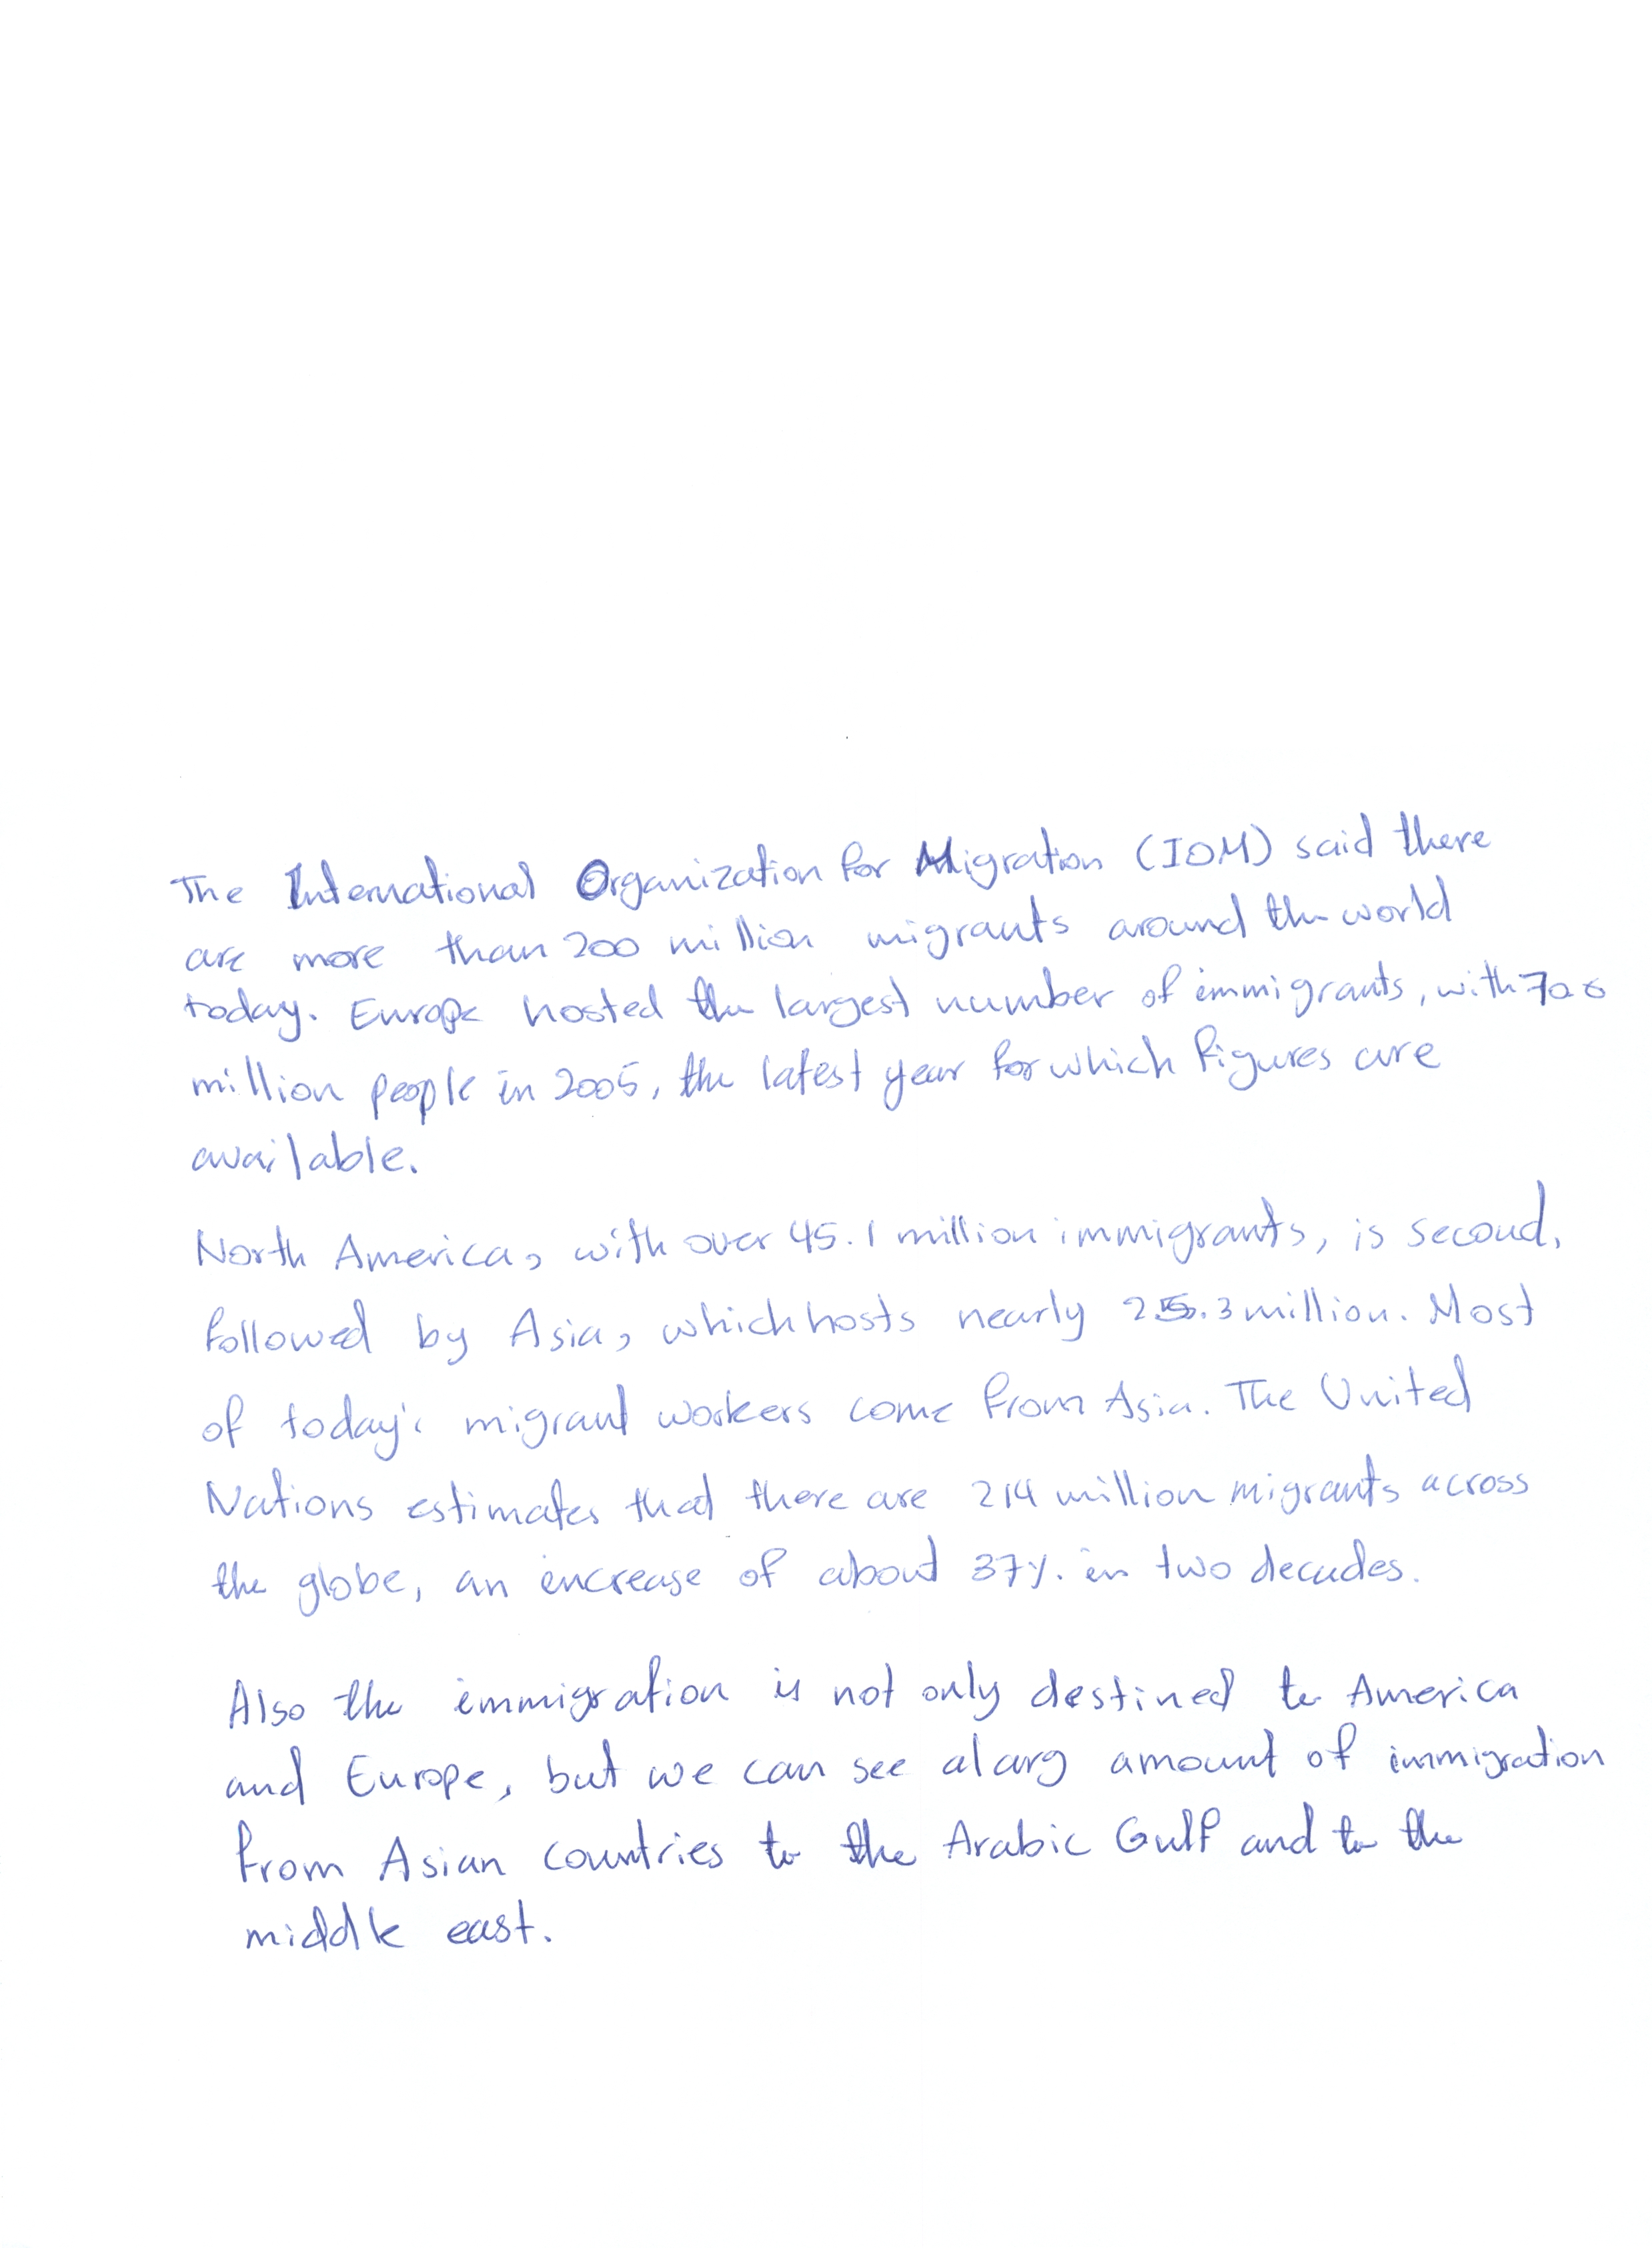 The International Organization for Migration (IOM) said there
are more than 200 million migrants around the world
today. Europe hosted the largest number of immigrants, with 70.6
million people in 2005, the latest year for which figures are
available.
North America, with over 45.1 million immigrants, is second,
followed by Asia, which hosts nearly 25.3 million. Most
of today's migrant workers come from Asia. The United
Nations estimates that there are 214 million migrants across
the globe, an increase of about 37%. in two decades.
Also the immigration is not only destined to America
and Europe, but we can see a larg amount of immigration
from Asian countries to the Arabic Gulf and to the
middle east.